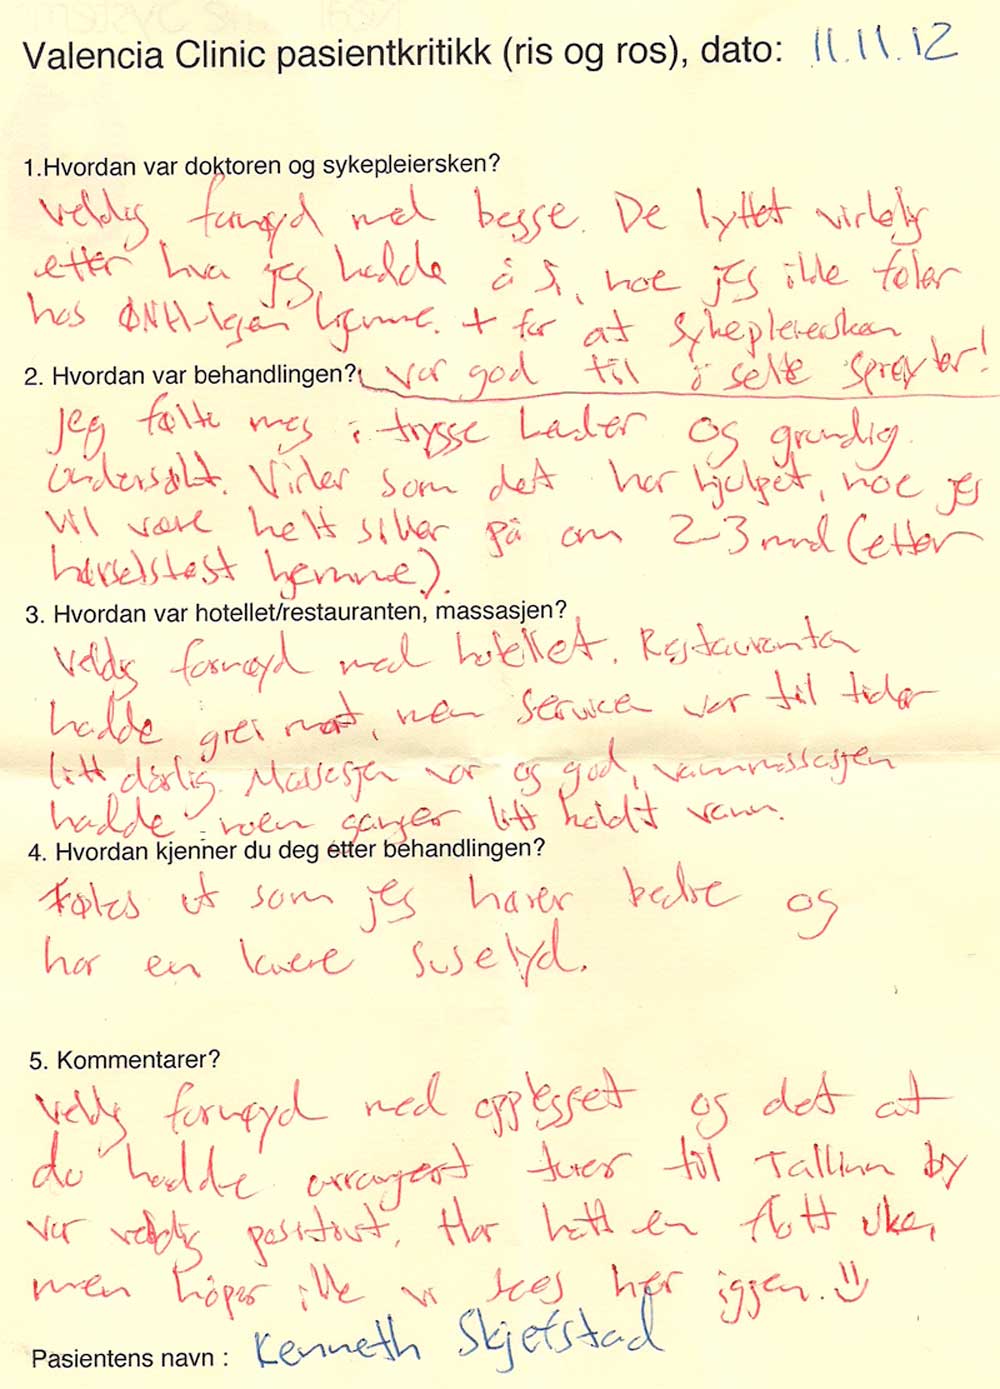 Valencia Clinic pasientkritikk (ris og ros), dato: 11.11.12
1.Hvordan var doktoren og sykepleiersken?
Veldig fornøyd med begge. De lyttet virkelig
etter hva jeg hadde å si, noe jeg ikke føler
hos ØNH-legen hjemme. + for at sykepleiersken
2. Hvordan var behandlingen? var god til å sette sprøyter!
Jeg følte meg i trygge hender og grundig
undersøkt. Virker som det har hjulpet, noe jeg
vil være helt sikker på om 2-3 mnd (etter
hørselstest hjemme).
3. Hvordan var hotellet/restauranten, massasjen?
Veldig fornøyd med hotellet. Restauranten
hadde grei mat, men servicen var til tider
litt dårlig. Massasjen var og god, vannmassasjen
hadde noen ganger litt kaldt vann.
4. Hvordan kjenner du deg etter behandlingen?
Føles ut som jeg hører bedre og
har en lavere suselyd.
5. Kommentarer?
Veldig fornøyd med opplegget og det at
du hadde arrangert turer til Tallinn by
var veldig positivt. Har hatt en flott uke,
men håper ikke vi sees her iggjen. :)
Pasientens navn : Kenneth Skjefstad